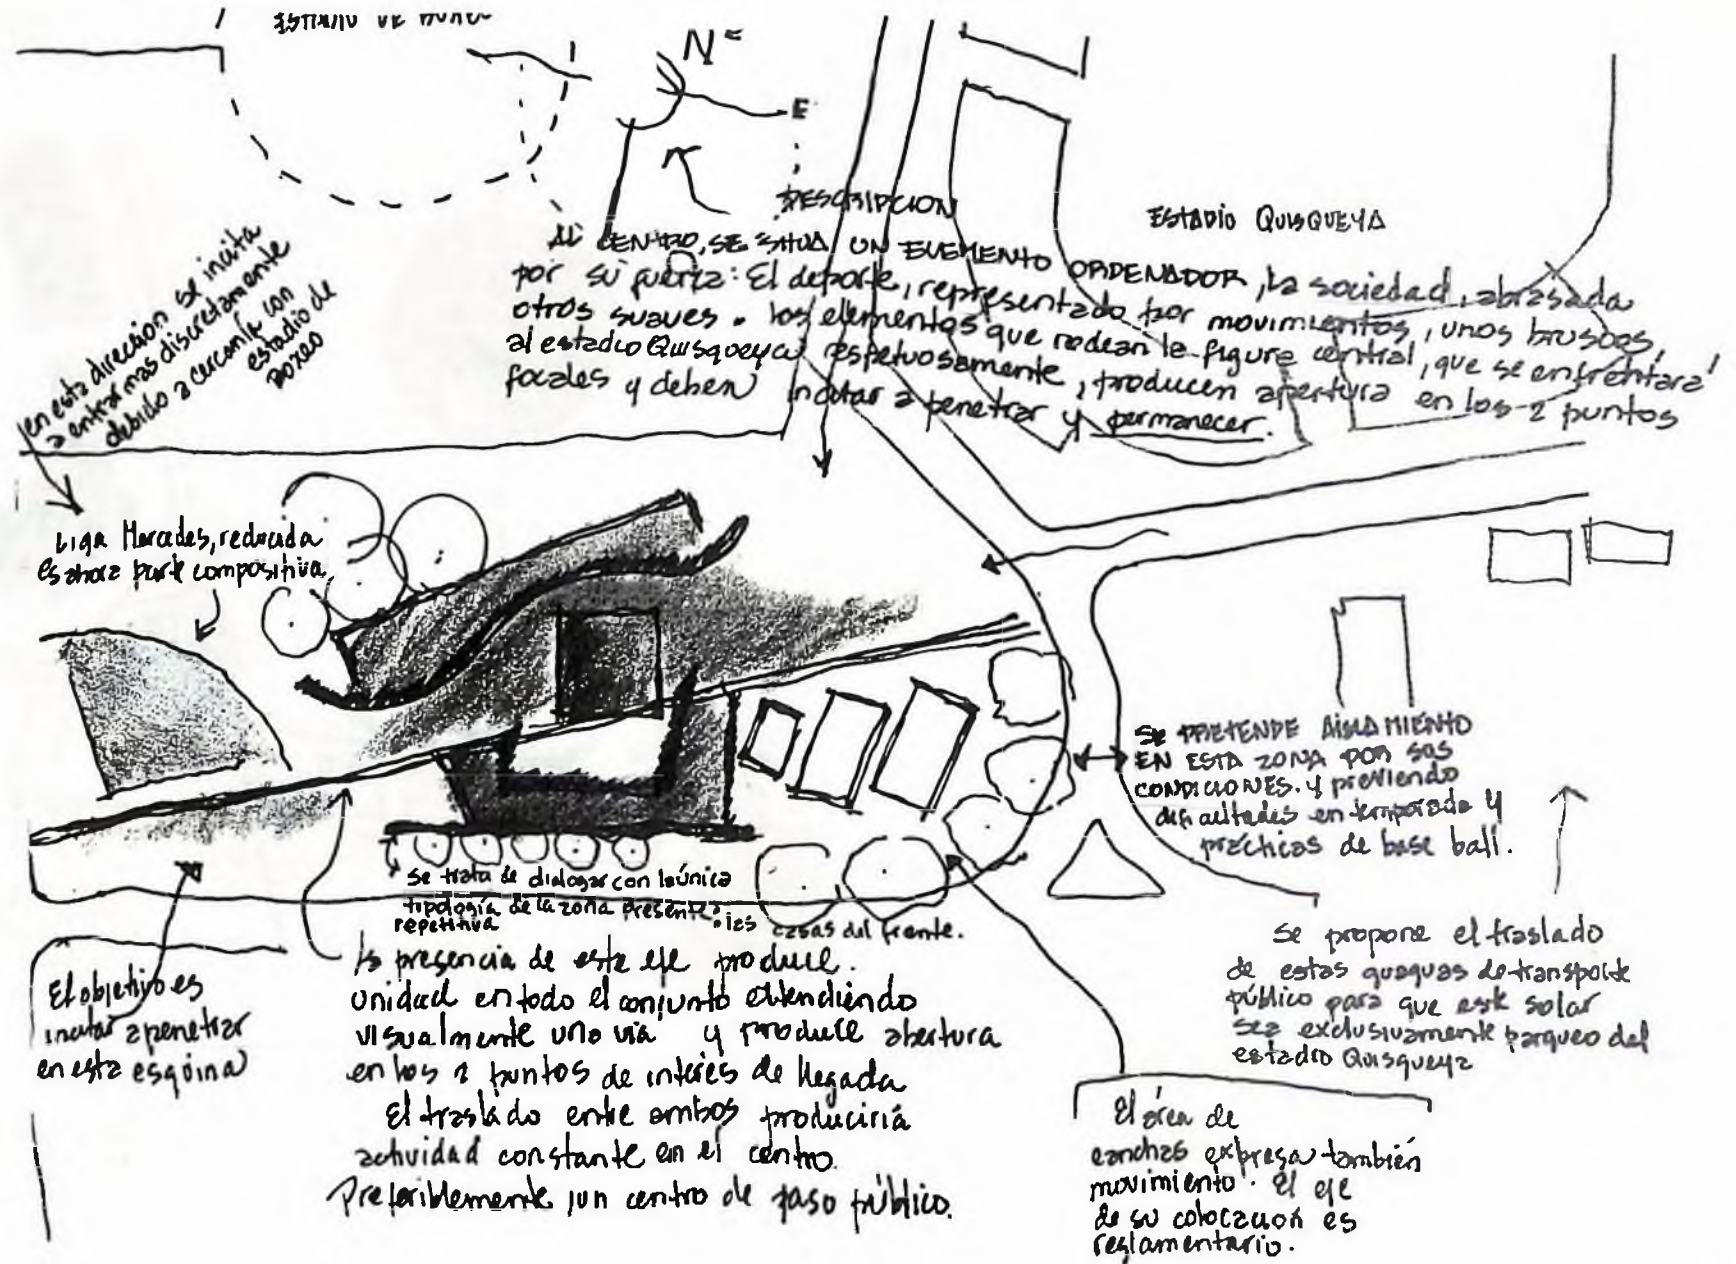 ESTADIO DE BOXEO
N
E
DESCRIPCION
AL CENTRO, SE SITUA UN ELEMENTO ORDENADOR, la sociedad, abrasada
por su fuerza: El deporte, representado por movimientos, unos bruscos,
otros suaves. los elementos que rodean la figura central, que se enfrentara
al estadio Quisqueya respetuosamente, producen apertura en los 2 puntos
focales y deben incitar a penetrar y permanecer.
ESTADIO QUISQUEYA
en esta direccion se incita
a entrar mas discretamente
debido a cercania con
estadio de
BOXEO
Liga Mercedes, reducida
es ahora parte compositiva.
SE PRETENDE AISLAMIENTO
EN ESTA ZONA POR SUS
CONDICIONES. y previendo
dificultades en temporada y
prácticas de base ball.
se trata de dialogar con la única
tipología de la zona presente:
repetitiva las casas del frente.
El objetivo es
incitar a penetrar
en esta esquina
la presencia de este eje produce.
unidad en todo el conjunto extendiendo
visualmente una via y produce abertura
en los 2 puntos de interés de llegada
El traslado entre ambos produciría
actividad constante en el centro.
Preferiblemente un centro de paso público.
Se propone el traslado
de estas guaguas de transporte
público para que este solar
sea exclusivamente parqueo del
estadio Quisqueya
El área de
canchas expresa también
movimiento. El eje
de su colocación es
reglamentario.